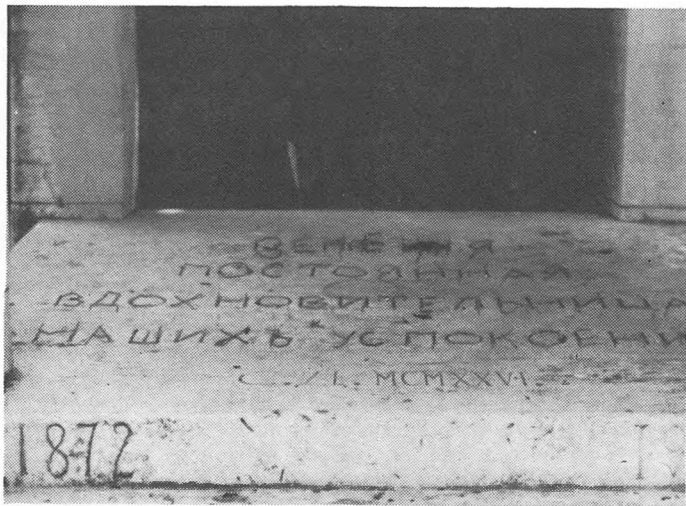 ВЕНЕЦІЯ
ПОСТОЯННАЯ
ВДОХНОВИТЕЛЬНИЦА
НАШИХЪ УСПОКОЕНИ
С.Л. MCMXXVI.
1872 19